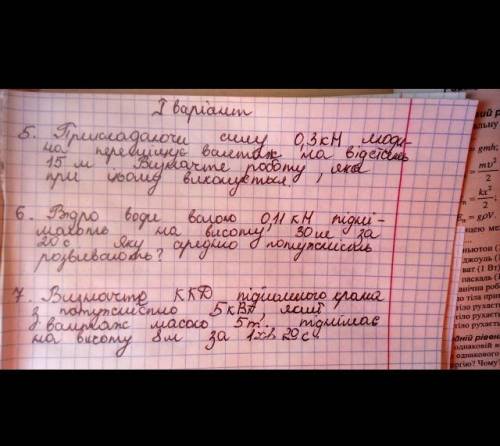 I варіант
5. Прикладаючи силу 0,3 кН люди-
на переміщує вантаж на відстань
15 м Визначте роботу, яка
при цьому виконується.
6. Відро води вагою 0,11 кН підні-
мають на висоту 30 м за
20 с Яку середню потужність
розвивають?
7. Визначте ККД підйомного крана
з потужністю 5 кВт, який
вантаж масою 5т. піднімає
на висоту 8м за 1хв 29 с.
ний рі
альну
= gmh;
= mv²
2
= kx²
2 ;
= gρV.
ньютон (
джоуль (1
ват (1 Вт)
паскаль (1
тіло рухаєт
тіло рухаєт
однаковій
однакового
ргію? Чому?